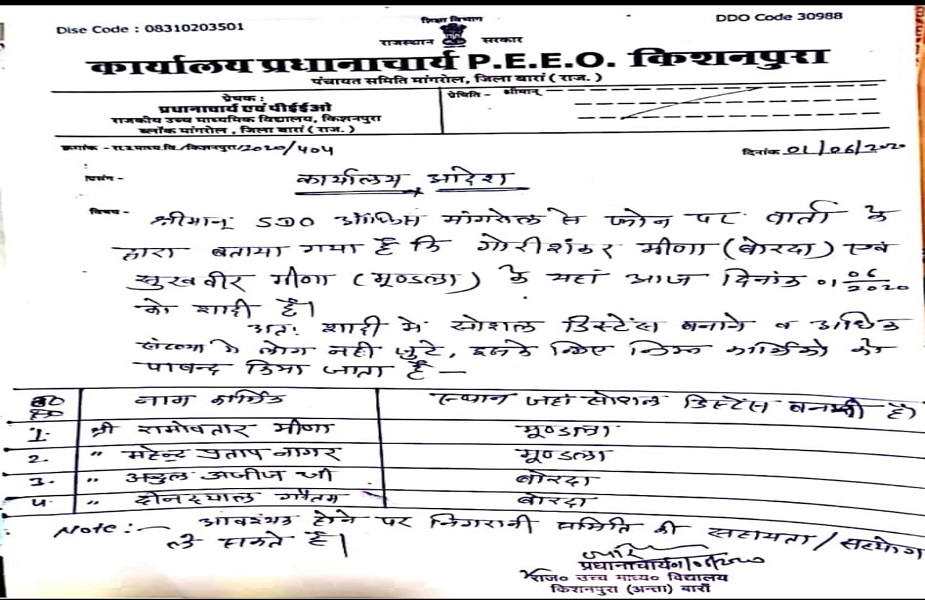 Dise Code : 08310203501
DDO Code 30988
शिक्षा विभाग
राजस्थान सरकार
कार्यालय प्रधानाचार्य P.E.E.O. किशनपुरा
पंचायत समिति मांगरोल, जिला बारां ( राज. )
प्रेषक :
प्रधानाचार्य एवं पीईईओ
राजकीय उच्च माध्यमिक विद्यालय, किशनपुरा
ब्लॉक मांगरोल , जिला बारां ( राज. )
प्रेषिति - श्रीमान्
क्रमांक - रा.उ.माध्य.वि./किशनपुरा/2020/404
दिनांक 01/06/2020
प्रसंग -
कार्यालय आदेश
विषय - श्रीमान् SDO ऑफिस मांगरोल से फोन पर वार्ता के
द्वारा बताया गया है कि गोरीशंकर मीणा (बोरदा) एवं
सुखवीर मीणा (मूण्डला) के यहां आज दिनांक 01 06/2020
को शादी है।
अतः शादी में सोशल डिस्टेंस बनाने व अधिक
संख्या में लोग नही जुटे, इसके लिए निम्न कार्मिको को
पाबन्द किया जाता है —
नाम कार्मिक
स्थान जहां सोशल डिस्टेंस बनानी है।
1. श्री रामोवतार मीणा
मूण्डला
2. " महेन्द्र प्रताप नागर
मूण्डला
3. " अब्दुल अजीज जी
बोरदा
4. " दीनदयाल गौतम
बोरदा
Note :— आवश्यक होने पर निगरानी समिति की सहायता/सहयोग
ले सकते है।
प्रधानाचार्य
राज० उच्च माध्य० विद्यालय
किशनपुरा (अन्ता) बारां